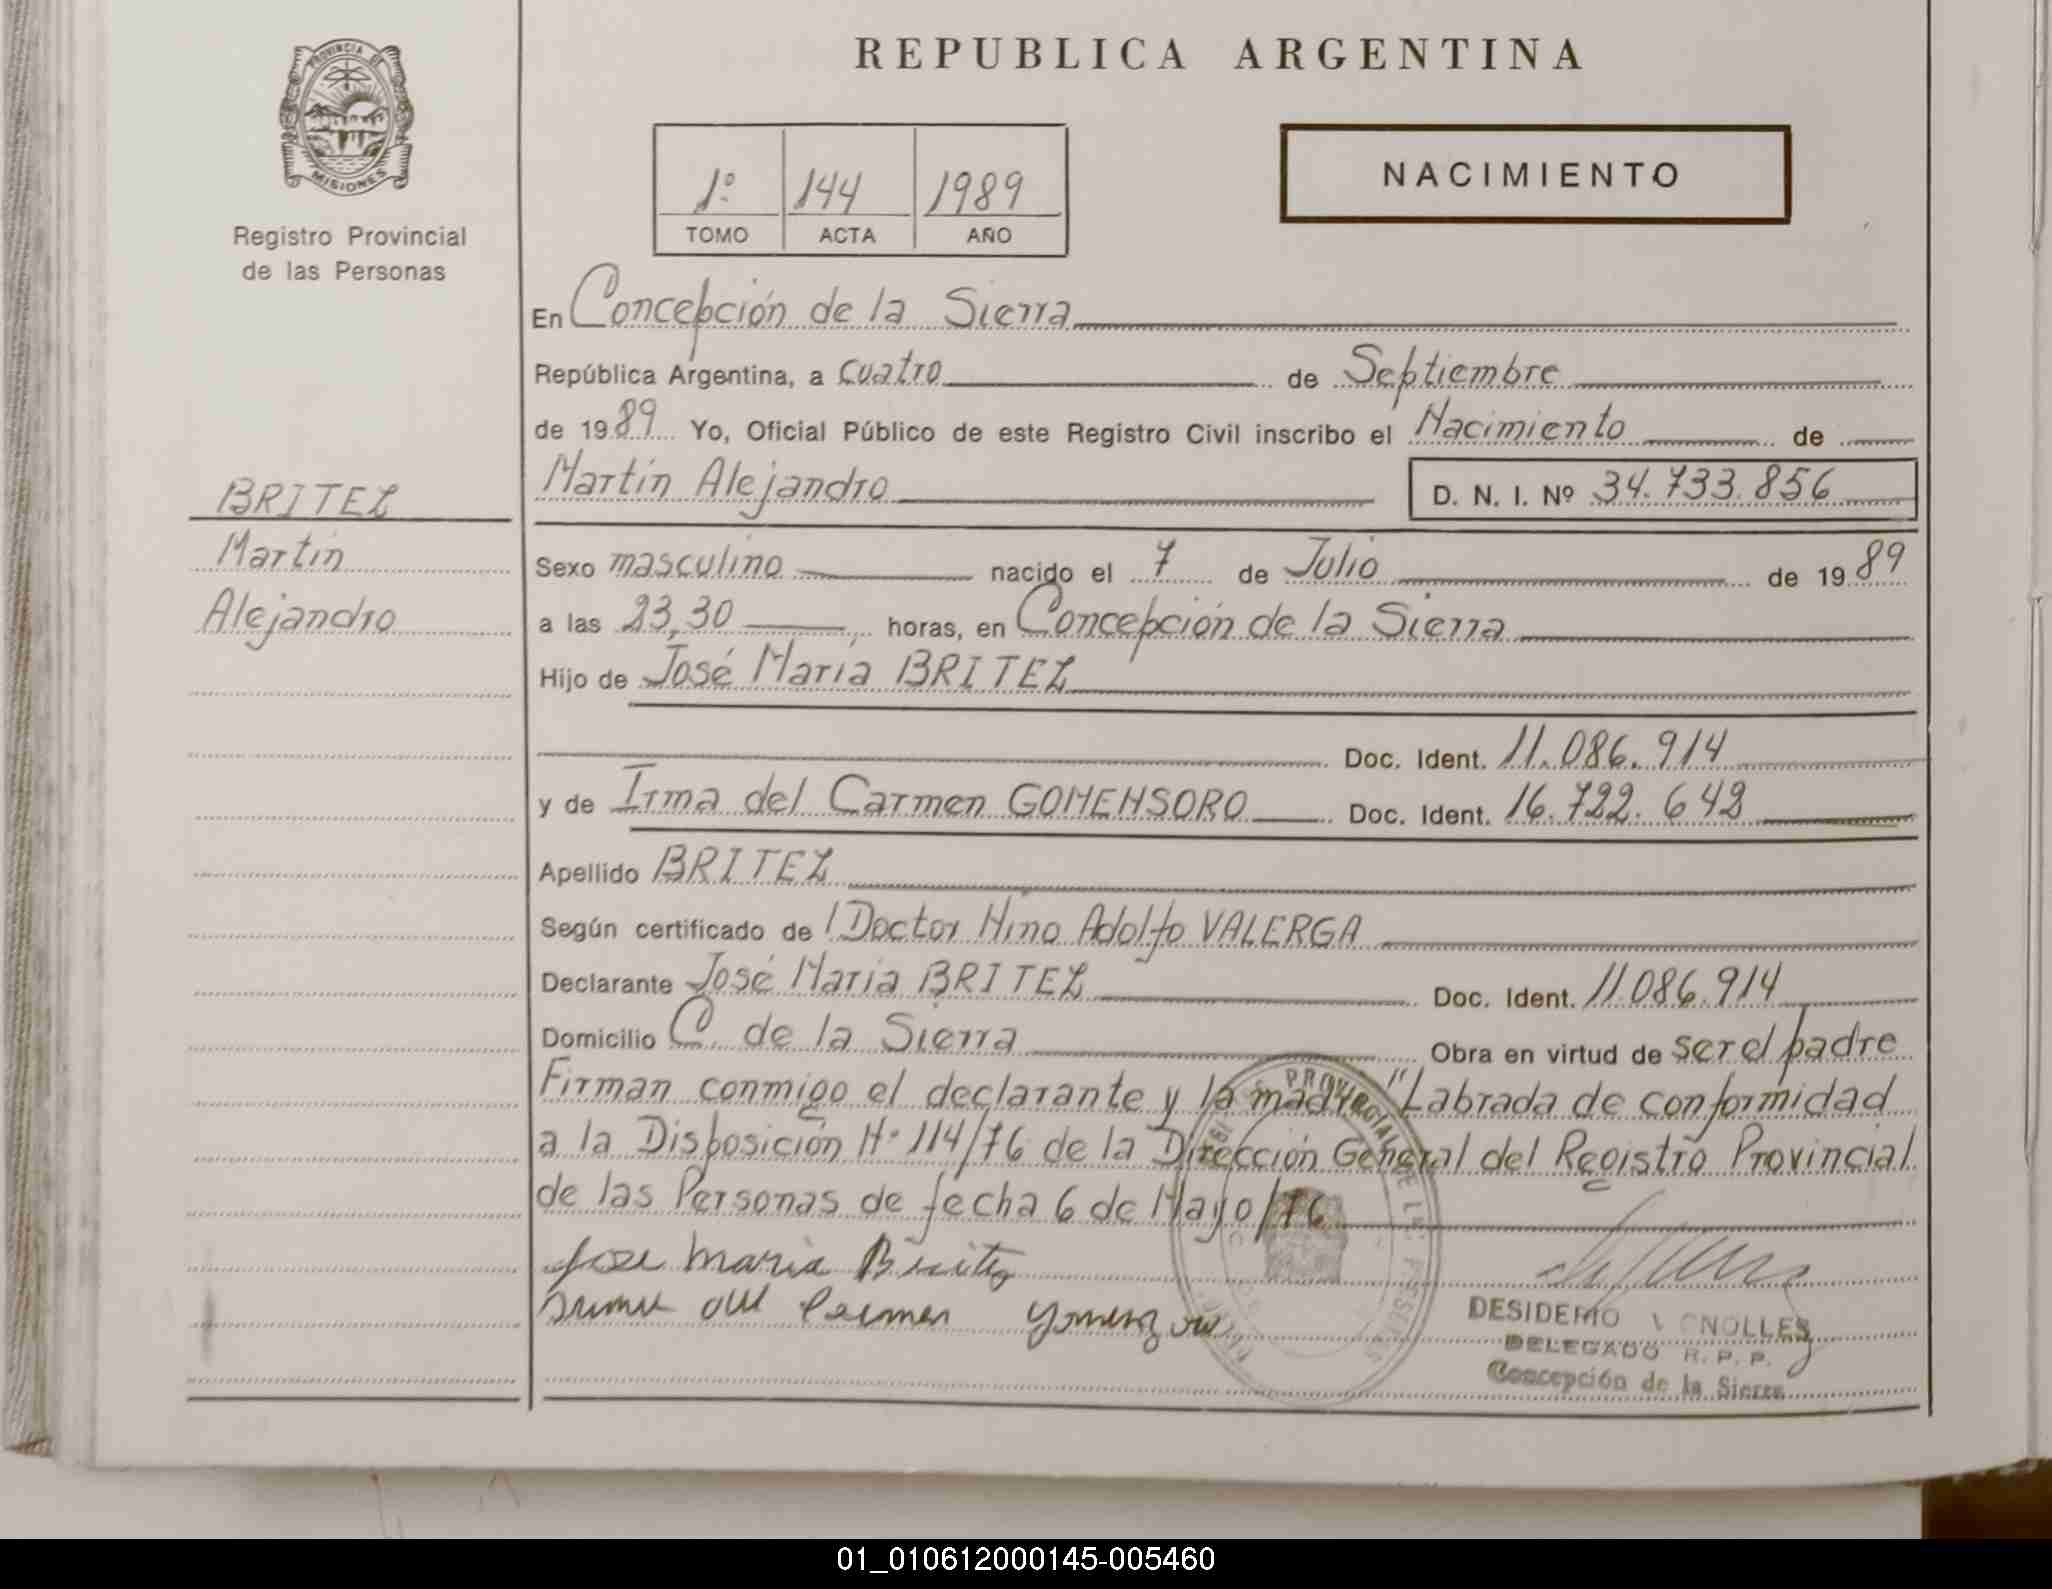 REPUBLICA ARGENTINA
PROVINCIA DE
MISIONES
Registro Provincial
de las Personas
1º 144 1989
TOMO ACTA AÑO
NACIMIENTO
En Concepción de la Sierra
República Argentina, a cuatro de Septiembre
de 1989 Yo, Oficial Público de este Registro Civil inscribo el Nacimiento de
BRITEZ
Martín Alejandro D. N. I. Nº 34.733.856
Martín
Sexo masculino nacido el 7 de Julio de 1989
Alejandro
a las 23,30 horas, en Concepción de la Sierra
Hijo de José María BRITEZ
Doc. Ident. 11.086.914
y de Irma del Carmen GOMENSORO Doc. Ident. 16.722.642
Apellido BRITEZ
Según certificado de l Doctor Nino Adolfo VALERGA
Declarante José María BRITEZ Doc. Ident. 11.086.914
Domicilio C. de la Sierra Obra en virtud de ser el padre
Firman conmigo el declarante y la madre "Labrada de conformidad
a la Disposición Nº 114/76 de la Dirección General del Registro Provincial
de las Personas de fecha 6 de Mayo/76
Jose Maria Britez
DESIDERIO
DELEGADO R. P. P.
Concepción de la Sierra
01_010612000145-005460